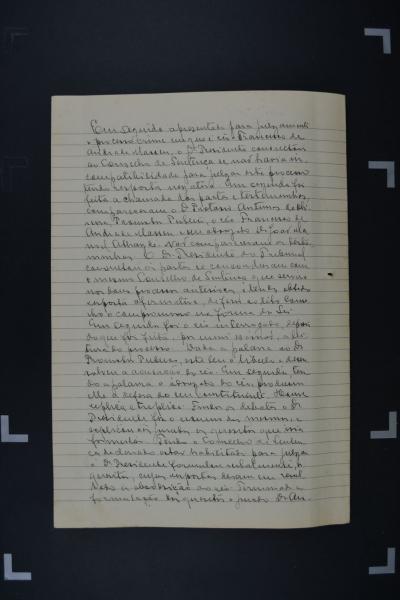 Em seguida apresentado para julgamento
o processo crime em que é réo Francisco de
Andrade Massena, o Dr. Presidente consultou
ao Conselho de Sentença se não havia in
compatibilidade para julgar este processo
tendo resposta negativa. Em seguida foi
feita a chamada das partes e testemunhas
compareceram o Dr. Antonio
Promotor Publico, o réo Francisco de
Andrade Massena e seu advogado Dr. João
Não compareceram as teste
munhas. O Dr. Presidente do Tribunal
consultou as partes se concordavam com
o mesmo Conselho de Sentença que serviu
nos dous processos anteriores, e tendo obtido
resposta affirmativa, deferio
o compromisso na forma da Lei.
Em seguida foi o réo interrogado, depois
do que foi feita, por mim escrivão, a lei
tura do processo. Dada a palavra ao Dr.
Promotor Publico, este leu o libello e desen
volveu a accusação do réo. Em seguida, ten
do a palavra o advogado do réo, produziu
elle a defesa do seu constituinte. Houve
replica e treplica. Findos os debates o Dr.
Presidente fez o resumo dos mesmos, e
explicou aos jurados os quesitos que ia
formular. Tendo o Conselho de Senten
ça declarado estar habilitado para julgar
o Dr. Presidente formulou verbalmente, os
quesitos, cujas respostas deram em resul
tado a absolvição do réo. Terminada a
formulação dos quesitos o jurado Dr.